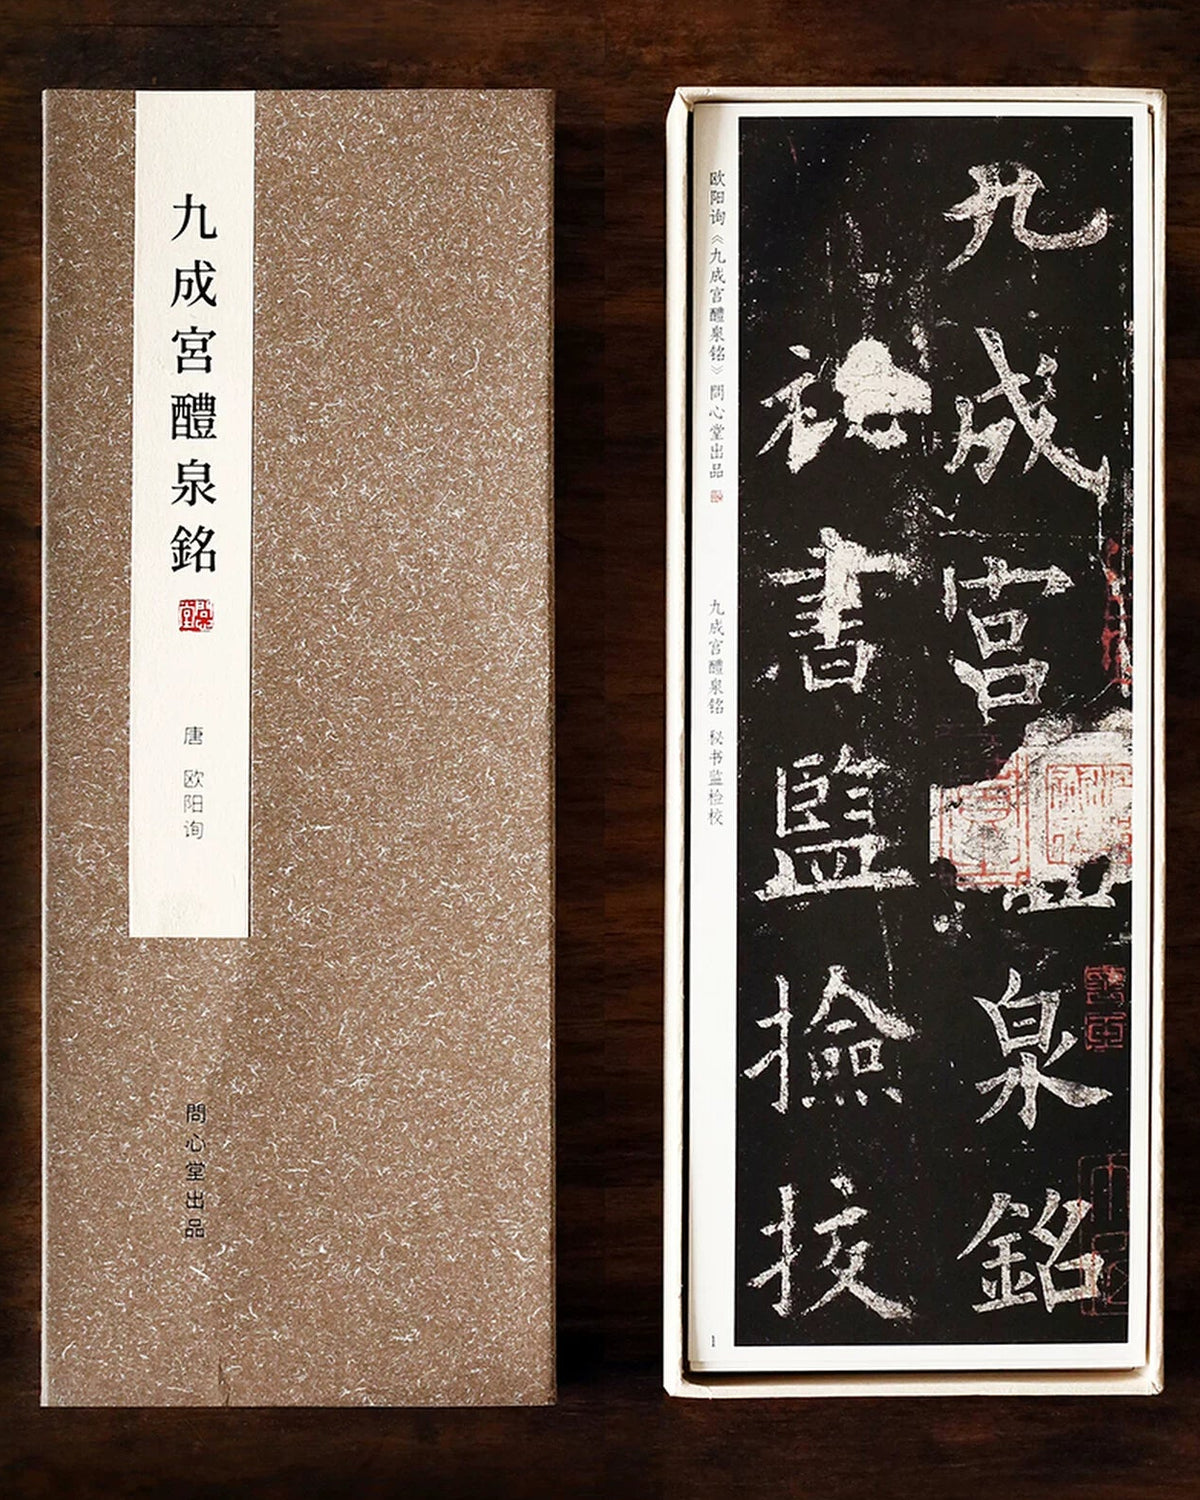 九成宮醴泉銘
唐 欧阳询
問心堂出品
九成宮醴泉銘
祕書監撿挍
欧阳询《九成宫醴泉铭》問心堂出品
九成宫醴泉铭 秘书监检校
1